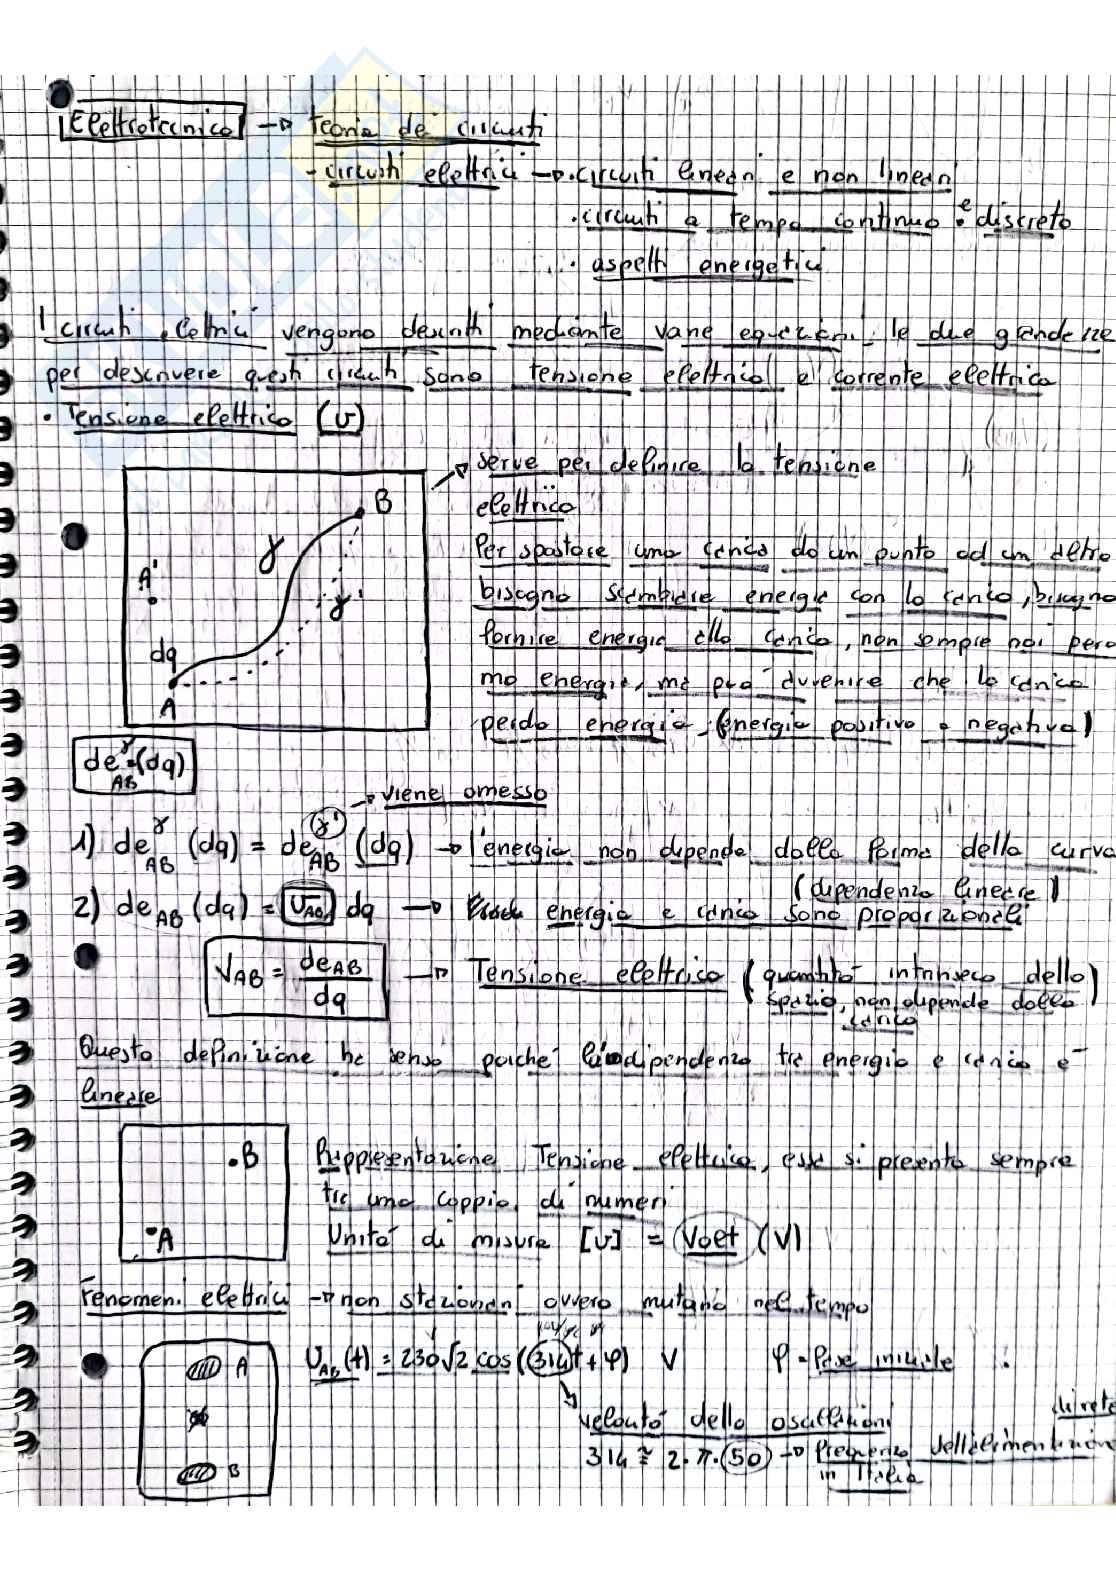 Elettrotecnica → teoria dei circuiti
- circuiti elettrici → • circuiti lineari e non lineari
• circuiti a tempo continuo e discreto
• aspetti energetici
I circuiti elettrici vengono descritti mediante varie equazioni, le due grandezze
per descrivere questi circuiti sono tensione elettrica e corrente elettrica
• Tensione elettrica (v)
B
γ
A'
γ'
dq
A
→ serve per definire la tensione
elettrica
Per spostare una carica da un punto ad un altro
bisogna scambiare energia con la carica, bisogna
fornire energia alla carica, non sempre noi
energia, ma può avvenire che la carica
perda energia. (energia positiva o negativa)
de^γ_AB (dq)
→ viene omesso
1) de^γ_AB (dq) = de^γ'_AB (dq) → l'energia non dipende dalla forma della curva
(dipendenza lineare)
2) de_AB (dq) = v_AB dq → energia e carica sono proporzionali
V_AB = de_AB / dq → Tensione elettrica (quantità intrinseca dello
spazio, non dipende dalla
carica)
Questa definizione ha senso poiché tra energia e carica è
lineare
B
A
Rappresentazione Tensione elettrica, essa si presenta sempre
tra una coppia di numeri
Unità di misura [v] = Volt (V)
Fenomeni elettrici → non stazionari ovvero mutano nel tempo
A
B
v_AB (t) = 230√2 cos(314t + φ) V φ = fase iniziale
velocità delle oscillazioni
314 ≅ 2·π·50 → frequenza dell'alimentazione
in Italia